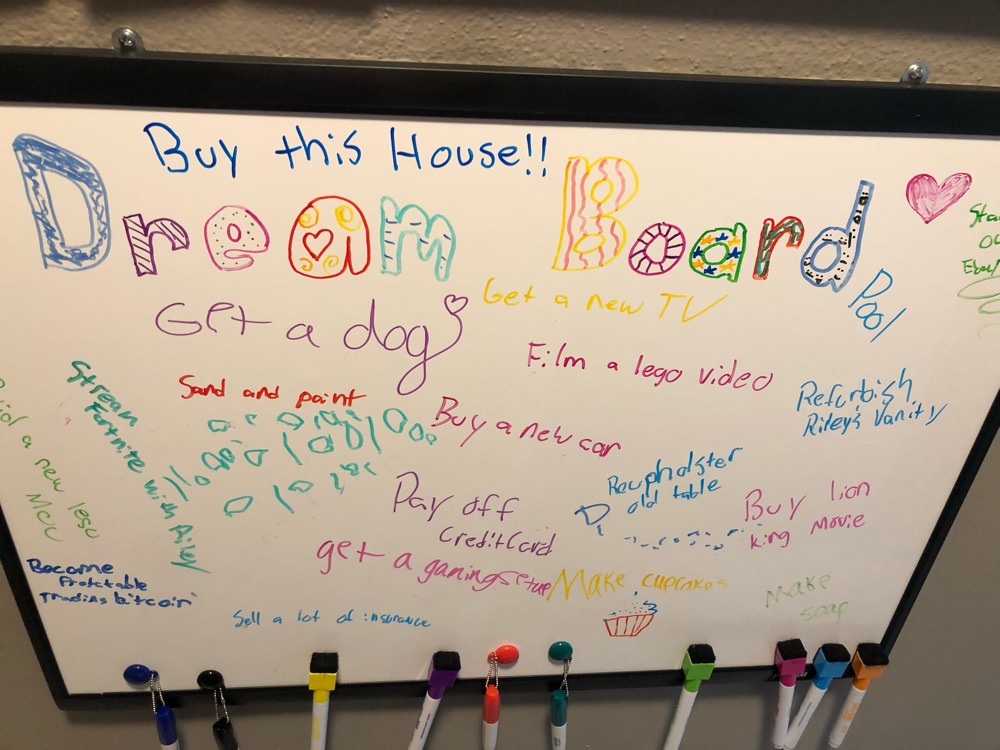 Buy this House!!
Dream Board
Get a dog
Get a new TV
Pool
Film a lego video
Sand and paint
Stream
Fortnite with Riley
Buy a new car
Refurbish
Riley's Vanity
a new lego
Moc
Reupholster
old table
Pay off
Credit Card
Buy lion
king Movie
get a gaming setup
Make cupcakes
Make
soap
Become
trading bitcoin
Sell a lot of insurance